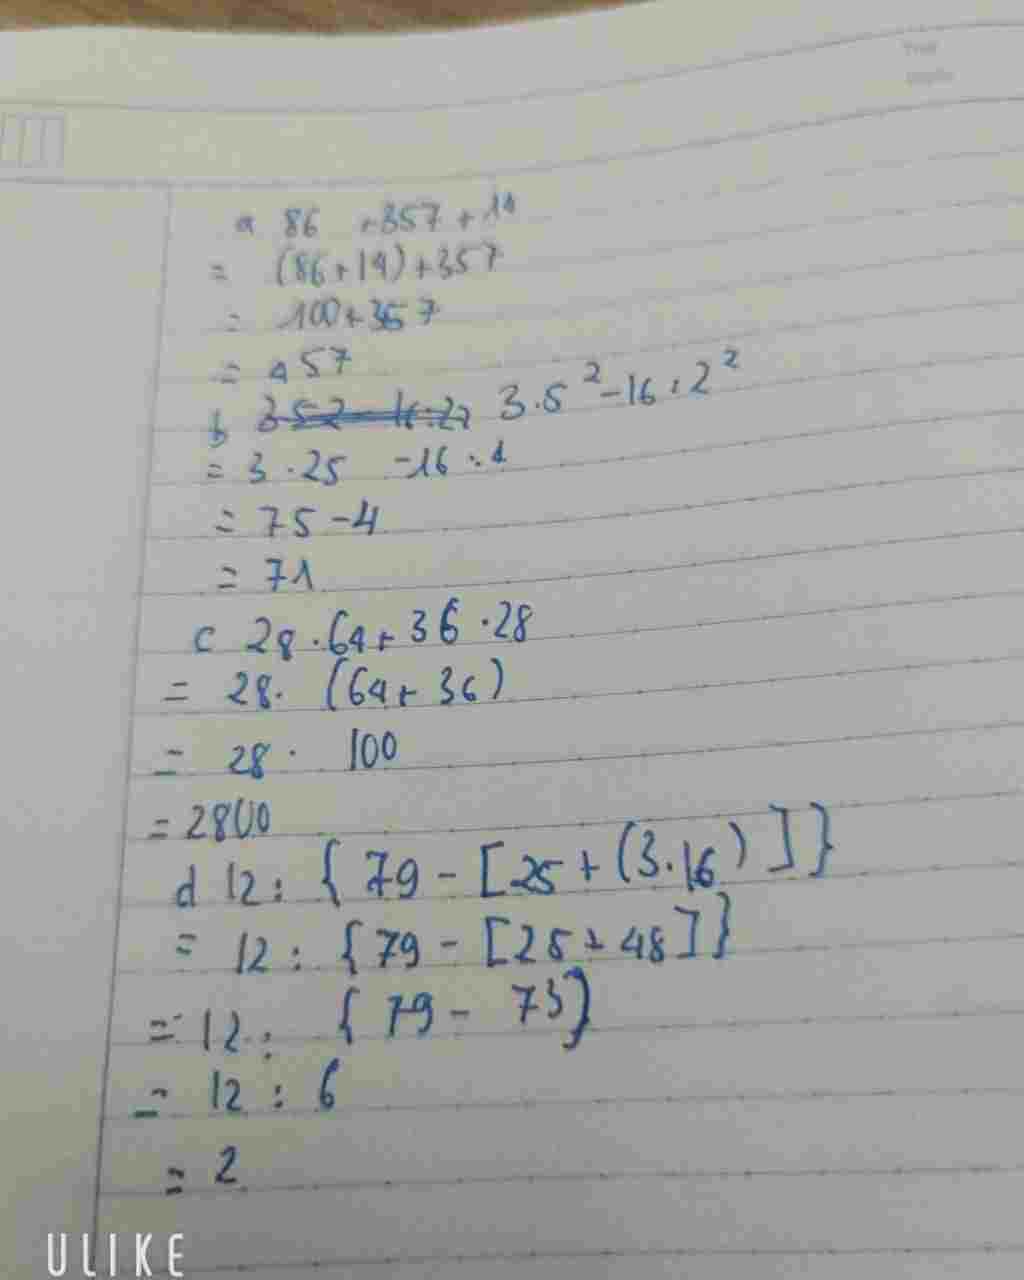 a 86 +357 + 14
= (86+14)+357
= 100+357
= 457
b 3.5² - 16 : 2²
= 3 . 25 - 16 : 4
= 75 - 4
= 71
c 28 . 64 + 36 . 28
= 28 . (64 + 36)
= 28 . 100
= 2800
d 12 : { 79 - [ 25 + (3.16) ] }
= 12 : { 79 - [ 25 + 48 ] }
= 12 : { 79 - 73 }
= 12 : 6
= 2
ULIKE